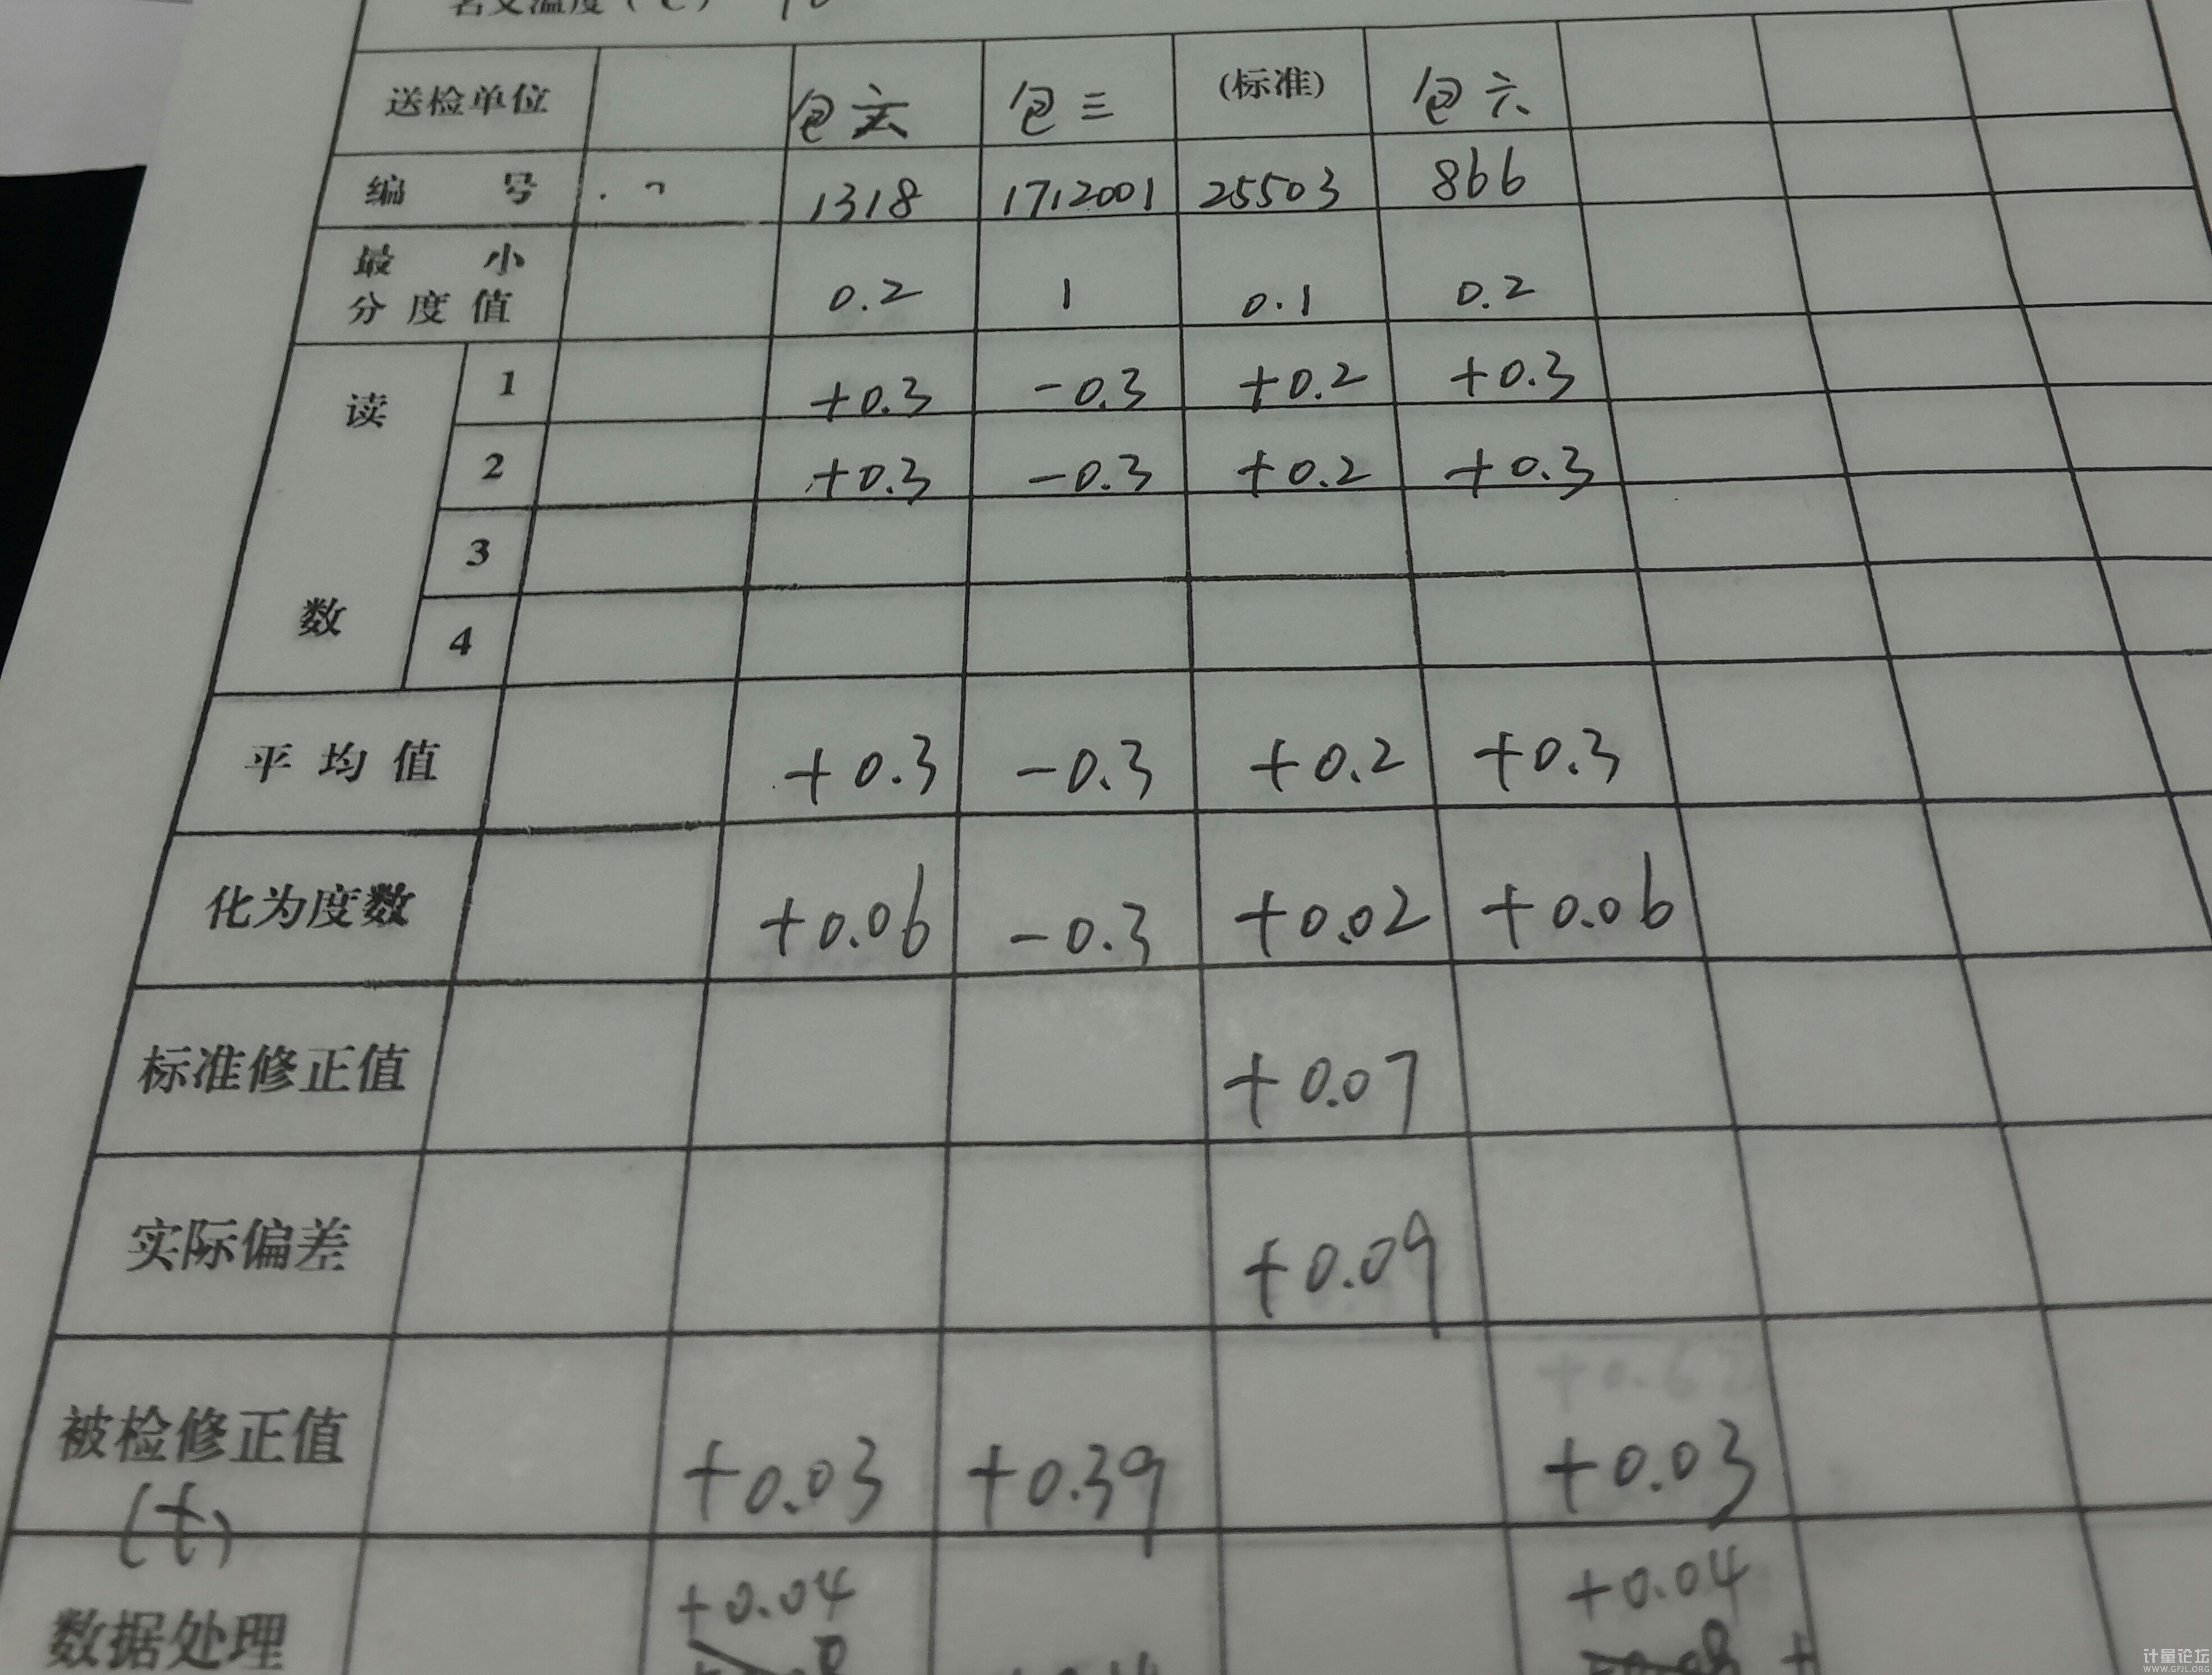 名义温度（℃） 10
送检单位 包六 包三 (标准) 包六
编 号 1318 1712001 25503 866
最 小
分 度 值 0.2 1 0.1 0.2
读 1 +0.3 -0.3 +0.2 +0.3
2 +0.3 -0.3 +0.2 +0.3
3
数 4
平 均 值 +0.3 -0.3 +0.2 +0.3
化为度数 +0.06 -0.3 +0.02 +0.06
标准修正值 +0.07
实际偏差 +0.09
被检修正值 +0.03 +0.39 +0.03
(t)
数据处理 +0.04 +0.04
计量论坛
WWW.GFJL.ORG